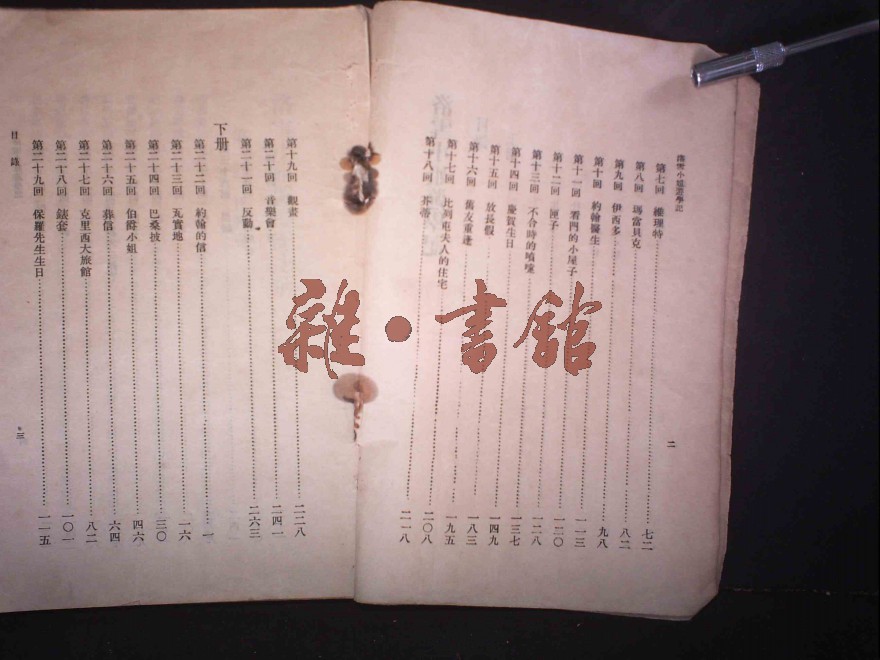 洛雪小姐遊學記
第七回 維理特……七二
第八回 瑪當貝克……八二
第九回 伊西多……九八
第十回 約翰醫生……一一三
第十一回 看門的小屋子……一二〇
第十二回 匣子……一二八
第十三回 不合時的噴嚏……一三七
第十四回 慶賀生日……一四九
第十五回 放長假……一八三
第十六回 舊友重逢……一九五
第十七回 比列屯夫人的住宅……二〇八
第十八回 芥蒂……二一八
二
第十九回 觀畫……二二八
第二十回 音樂會……二四一
第二十一回 反動……二六三
下册
第二十二回 約翰的信……一
第二十三回 瓦實地……一六
第二十四回 巴桑披……三〇
第二十五回 伯爵小姐……四六
第二十六回 葬信……六四
第二十七回 克里西大旅館……八二
第二十八回 錶套……一〇一
第二十九回 保羅先生生日……一一五
目錄
三
雜·書館